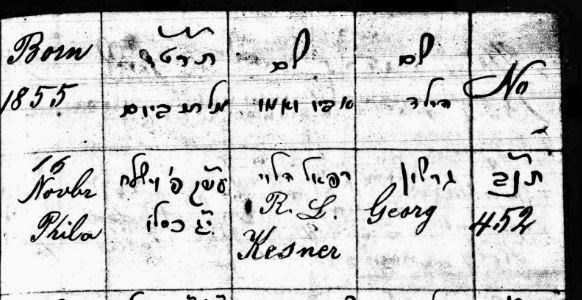 Born
1855
ביום
שם
אביו ואמו
שם
הילד
No
16
Novbr
Phila
עש"ק פ' וישלח
י"ג כסלו
רפאל הלוי
R. L.
Kesner
גרשון
Georg
תנ"ב
452